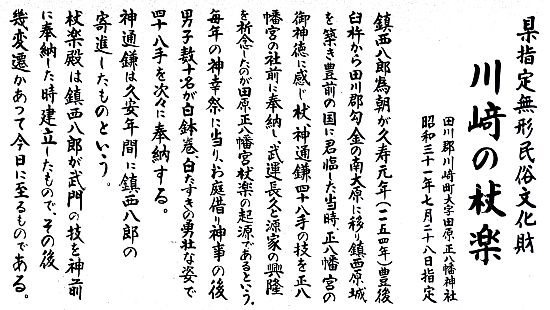 県指定無形民俗文化財
川﨑の杖楽
田川郡川崎町大字田原 正八幡神社
昭和三十一年七月二十八日指定
鎮西八郎為朝が久寿元年(一一五四年)豊後
臼杵から田川郡勾金の南大原に移り鎮西原城
を築き豊前の国に君臨した当時、正八幡宮の
御神徳に感じ杖、神通鎌四十八手の技を正八
幡宮の社前に奉納し、武運長久と源家の興隆
を祈念したのが田原正八幡宮杖楽の起源であるという。
毎年の神幸祭に当り、お庭借り神事の後
男子数十名が白鉢巻、白たすきの勇壮な姿で
四十八手を次々に奉納する。
神通鎌は久安年間に鎮西八郎の
寄進したものという。
杖楽殿は鎮西八郎が武門の技を神前
に奉納した時建立したもので、その後
幾変還かあって今日に至るものである。